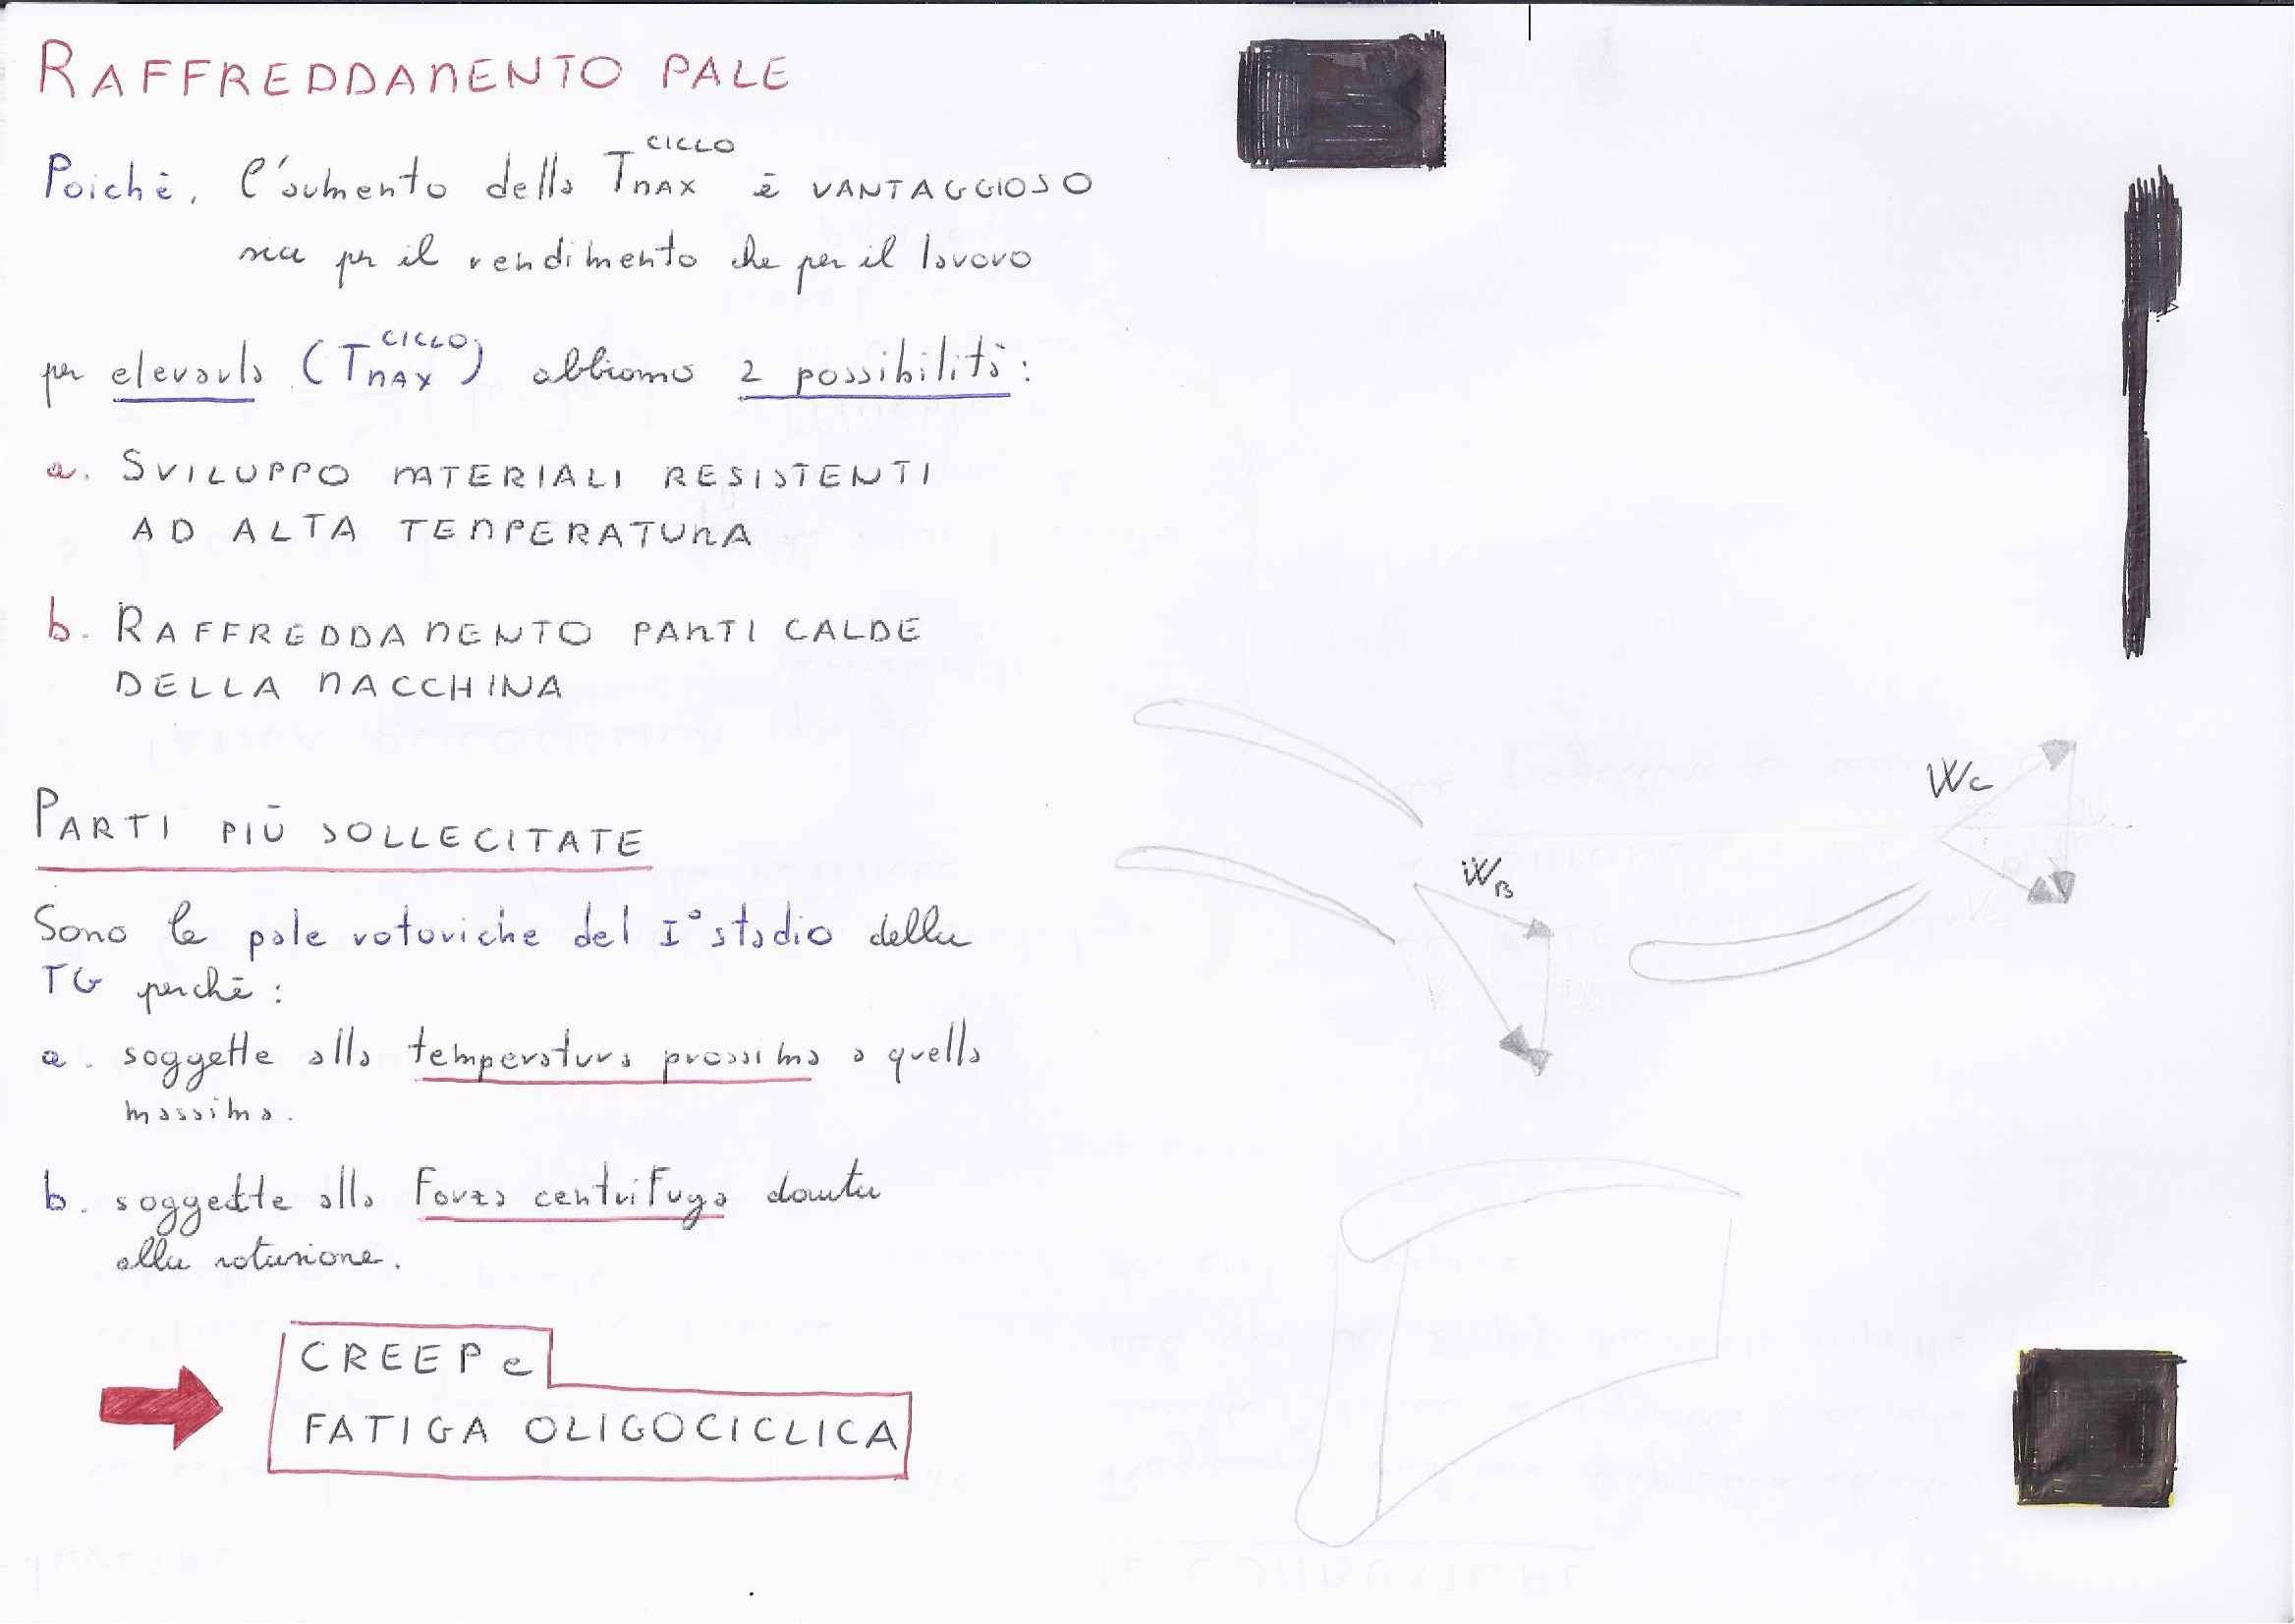 RAFFREDDAMENTO PALE
Poichè, l'aumento della T_MAX^CICLO è VANTAGGIOSO
sia per il rendimento che per il lavoro
per elevarla (T_MAX^CICLO) abbiamo 2 possibilità:
a. SVILUPPO MATERIALI RESISTENTI
AD ALTA TEMPERATURA
b. RAFFREDDAMENTO PARTI CALDE
DELLA MACCHINA
PARTI PIÙ SOLLECITATE
Sono le pale rotoriche del I° stadio della
TG perchè:
a. soggette alla temperatura prossima a quella
massima.
b. soggette alla Forza centrifuga dovuta
alla rotazione.
CREEP e
FATIGA OLIGOCICLICA
W_B
W_C